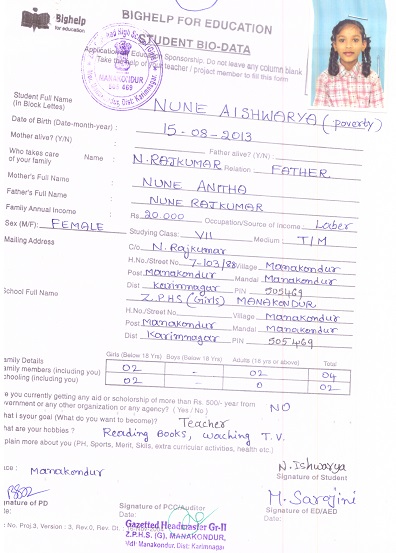 Bighelp
for education
BIGHELP FOR EDUCATION
STUDENT BIO-DATA
Application for Education Sponsorship. Do not leave any column blank
Take the help of your teacher / project member to fill this form
MANAKONDUR
505 469
Student Full Name
(In Block Letters) : NUNE AISHWARYA (poverty)
Date of Birth (Date-month-year) : 15-08-2013
Mother alive? (Y/N) : Father alive? (Y/N) :
Who takes care
of your family Name : N.RAJKUMAR Relation : FATHER
Mother's Full Name : NUNE ANITHA
Father's Full Name : NUNE RAJKUMAR
Family Annual Income : Rs. 20.000 Occupation/Source of Income : Laber
Sex (M/F): FEMALE Studying Class: VII Medium : T/M
Mailing Address C/o N. Rajkumar
H.No./Street No. 7-103/88 Village Manakondur
Post. Manakondur Mandal Manakondur
Dist Karimnagar PIN 505469
School Full Name : Z.P.H.S (Girls) MANAKONDUR
H.No./Street No. Village Manakondur
Post. Manakondur Mandal Manakondur
Dist Karimnagar PIN 505469
amily Details Girls (Below 18 Yrs) Boys (Below 18 Yrs) Adults (18 yrs or above) Total
amily members (including you) 02 - 02 04
chooling (including you) 02 - 0 02
e you currently getting any aid or scholarship of more than Rs. 500/- year from
vernment or any other organization or any agency? ( Yes / No ) NO
hat i syour goal (What do you want to become)? Teacher
hat are your hobbies ? Reading Books, waching T.V.
plain more about you (PH, Sports, Merit, Skills, extra curricular activities, health etc.)
N. Ishwarya
Signature of Student
ce : Manakondur
M. Sarojini
gnature of PD Signature of PCC/Auditor Signature of ED/AED
te: Date: Date:
Gazetted Headmaster Gr-II
: No. Proj.3, Version : 3, Rev.0, Rev. Dt.
Z.P.H.S. (G), MANAKONDUR,
Vill: Manakondur, Dist: Karimnagar